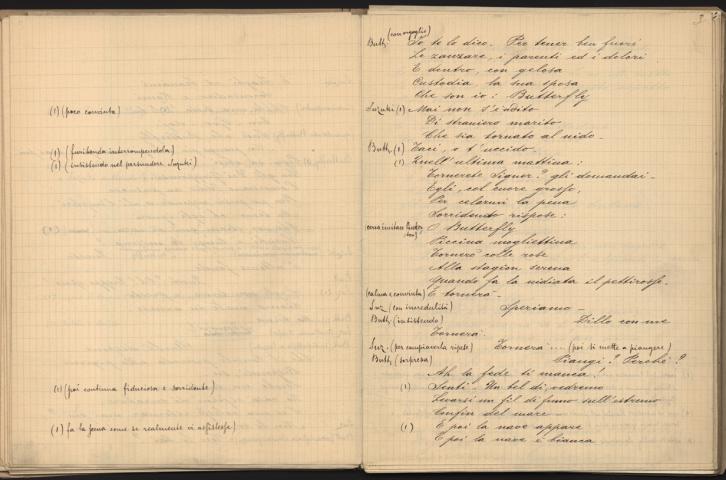 (1) (poco convinta)
(1) (furibonda interrompendola)
(1) (insistendo nel persuadere Suzuki)
(1) (poi continua fiduciosa e sorridente)
(1) fa la scena come se realmente vi assistesse)
3
Butt. (con orgoglio) Io te lo dico. Per tener ben fuori
Le zanzare, i parenti ed i dolori
E dentro, con gelosa
Custodia la sua sposa
Che son io: Butterfly
Suzuki (1) Mai non s'è udito
Di straniero marito
Che sia tornato al nido.
Butt. (1) Taci, o t'uccido.
(1) Quell'ultima mattina:
Tornerete Signor? gli domandai.
Egli, col cuore grosso,
Per celarmi la pena
Sorridendo rispose:
O Butterfly
Piccina mogliettina
Tornerò colle rose
Alla stagion serena
Quando fa la nidiata il pettirosso.
(calma e convinta) E tornerà.
Suz. (con incredulità) Speriamo.
Butt. (insistendo) Dillo con me
Tornerà.
Suz. (per compiacerla ripete) Tornerà... (poi si mette a piangere)
Butt. (sorpresa) Piangi? Perchè?
Ah la fede ti manca!
(1) Senti. Un bel dì vedremo
Levarsi un fil di fumo sull'estremo
Confin del mare.
(1) E poi la nave appare
E poi la nave è bianca